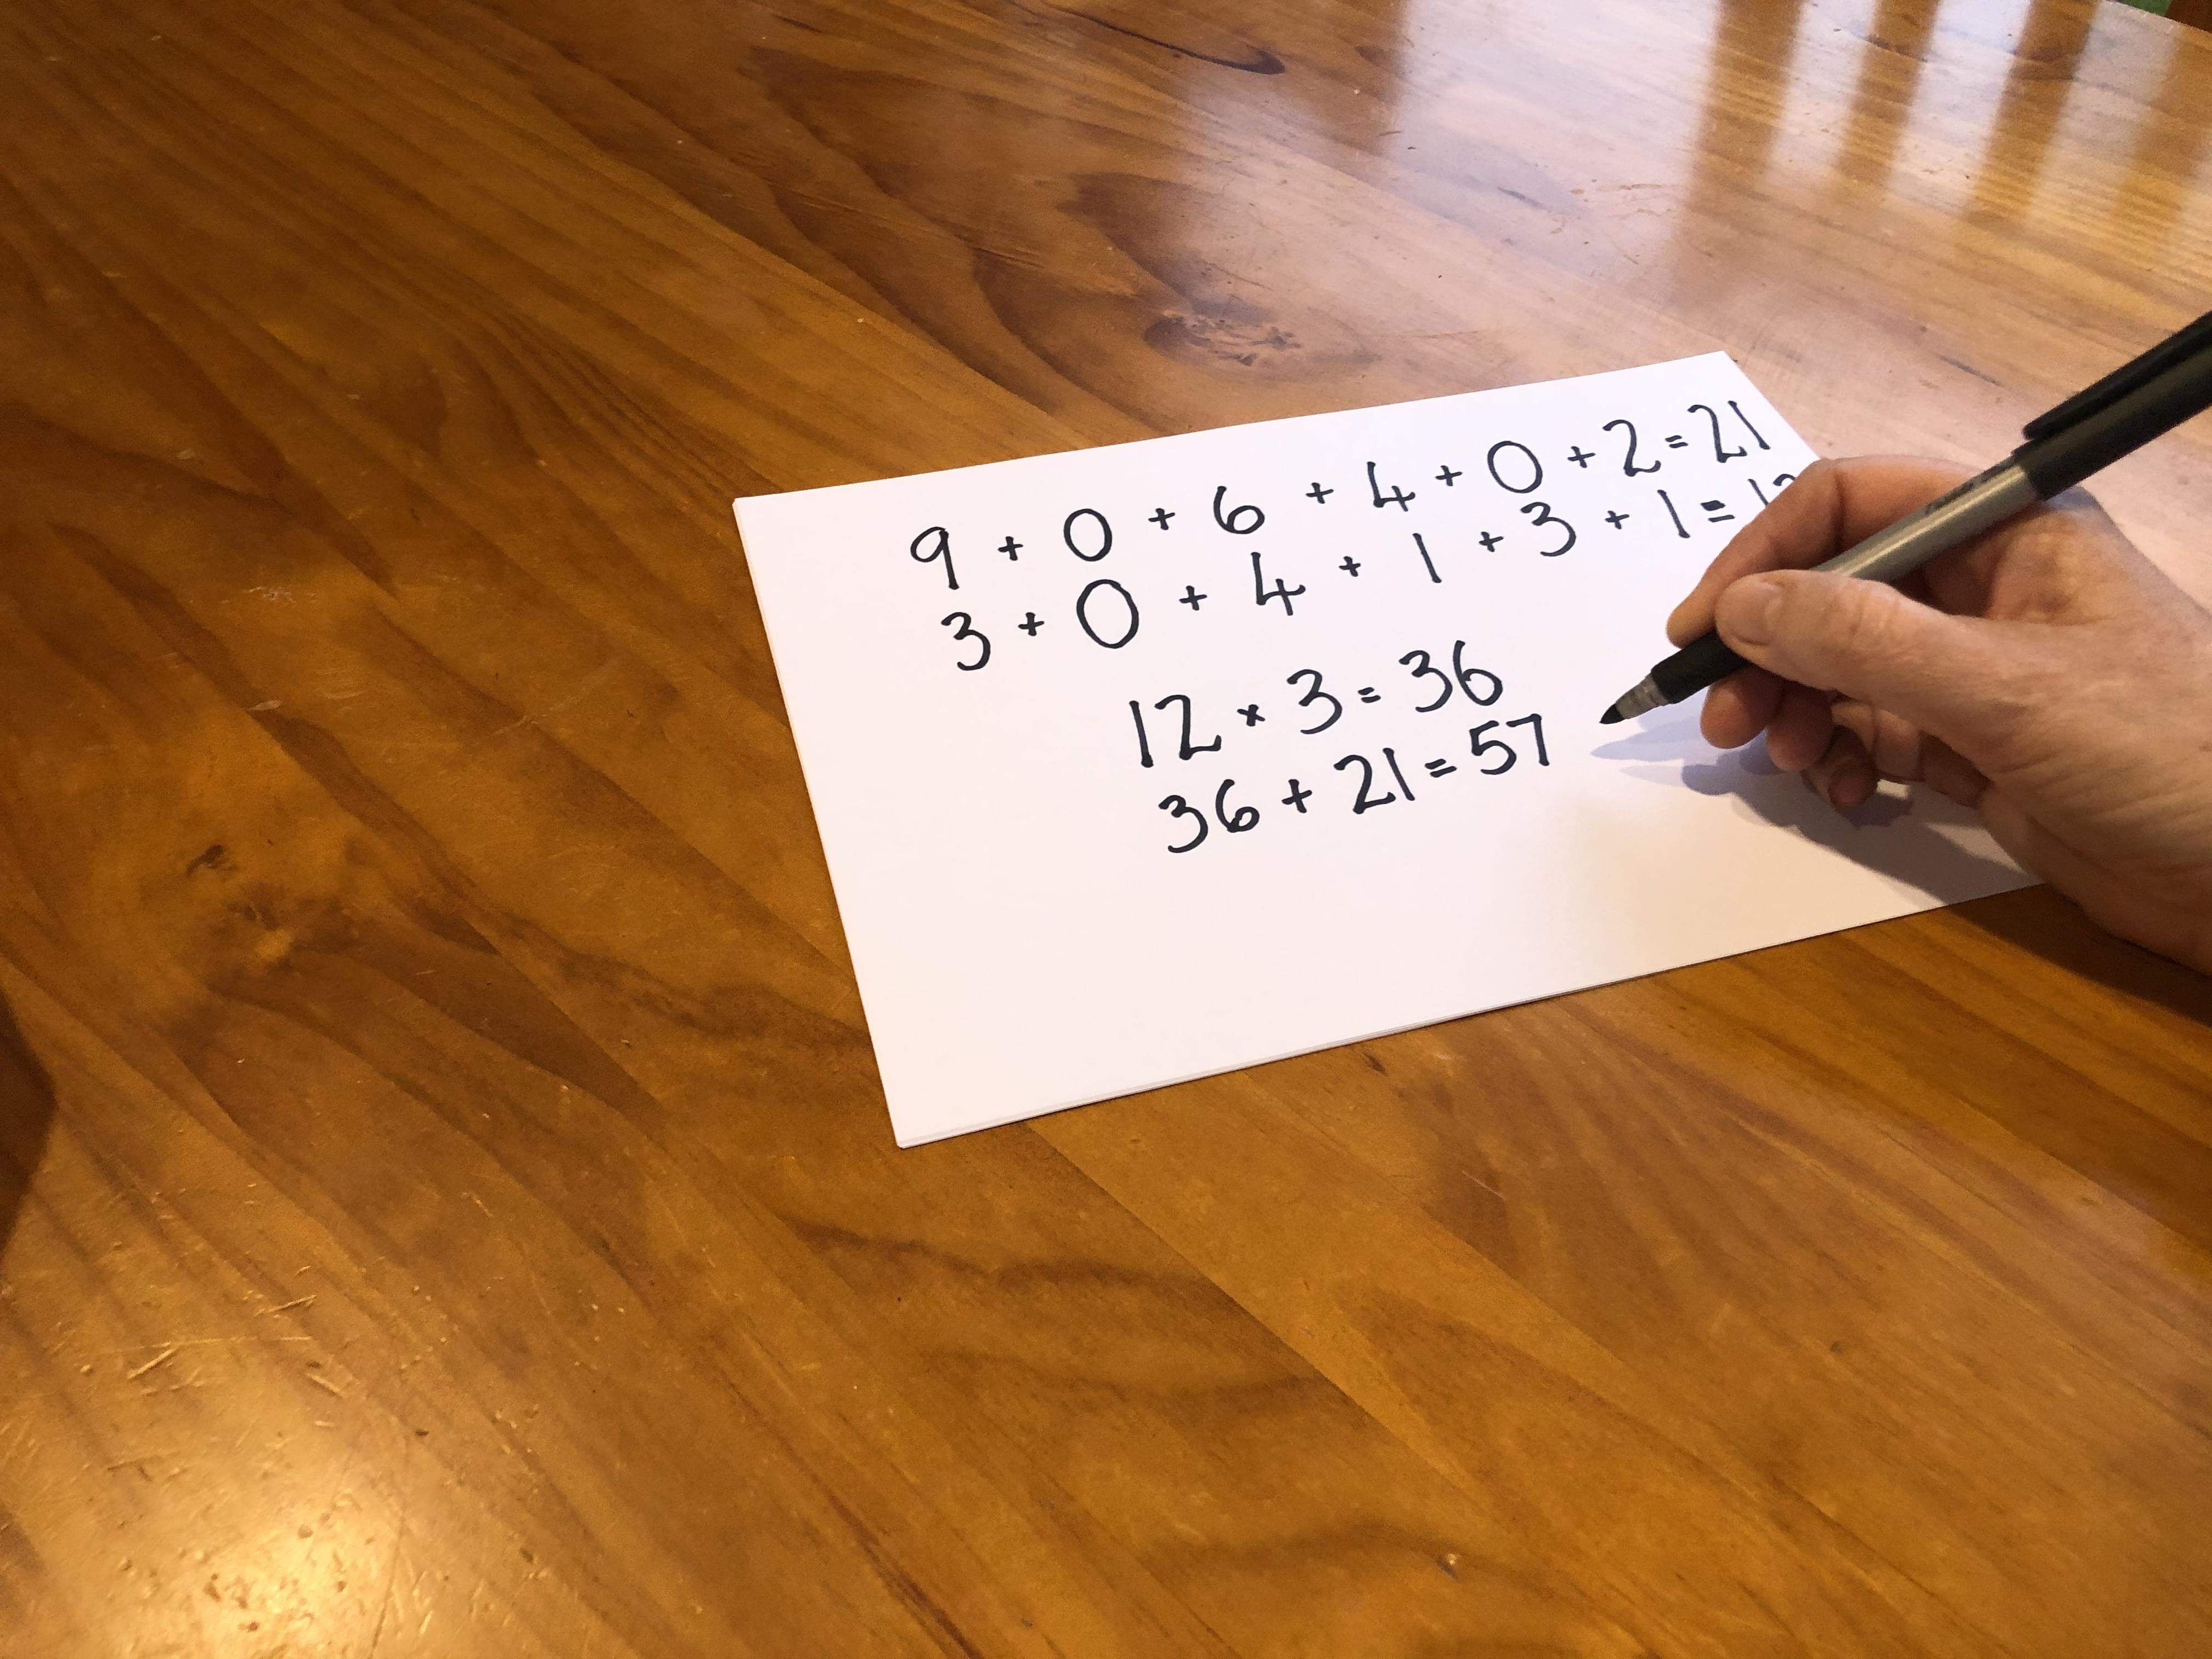 9 + 0 + 6 + 4 + 0 + 2 = 21
3 + 0 + 4 + 1 + 3 + 1 = 12
12 × 3 = 36
36 + 21 = 57